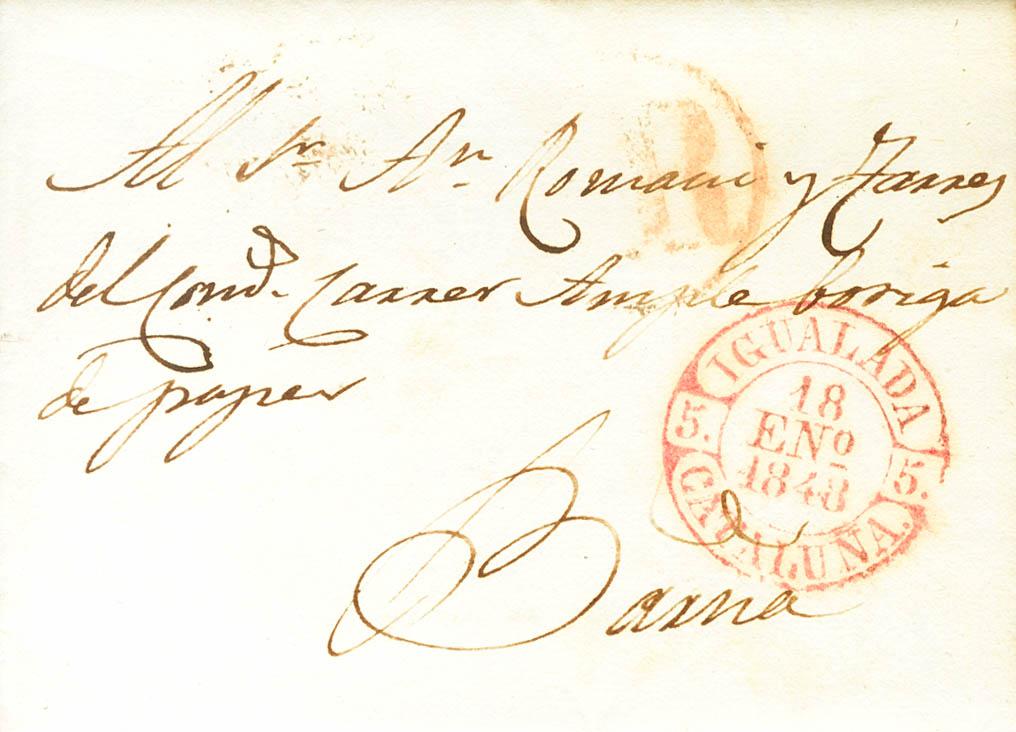 Al Sr. An. Romani y Tarres
del Cond. Carrer Ample botiga
de paper
Barna
R
IGUALADA
5. 18 5.
ENº
1848
CATALUÑA.